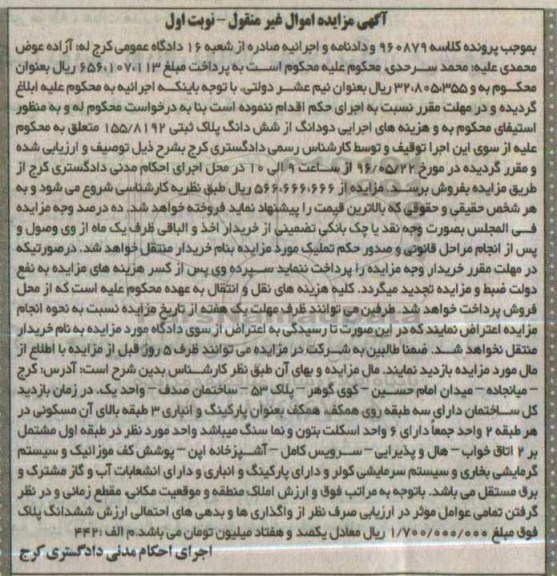 آگهی مزایده اموال غیر منقول – نوبت اول
بموجب پرونده کلاسه ۹۶۰۸۷۹ و دادنامه و اجرائیه صادره از شعبه ۱۶ دادگاه عمومی کرج له: آزاده عوض
محمدی علیه: محمد سرحدی، محکوم علیه محکوم است به پرداخت مبلغ ۶۵۶،۱۰۷،۱۱۳ ریال بعنوان
محکوم به و ۳۲،۸۰۵،۳۵۵ ریال بعنوان نیم عشر دولتی. با توجه باینکه اجرائیه به محکوم علیه ابلاغ
گردیده و در مهلت مقرر نسبت به اجرای حکم اقدام ننموده است بنا به درخواست محکوم له و به منظور
استیفای محکوم به و هزینه های اجرایی دودانگ از شش دانگ پلاک ثبتی ۱۵۵/۸۱۹۲ متعلق به محکوم
علیه از سوی این اجرا توقیف و توسط کارشناس رسمی دادگستری کرج بشرح ذیل توصیف و ارزیابی شده
و مقرر گردیده در مورخ ۹۶/۰۵/۲۲ از ساعت ۹ الی ۱۰ در محل اجرای احکام مدنی دادگستری کرج از
طریق مزایده بفروش برسد. مزایده از ۵۶۶،۶۶۶،۶۶۶ ریال طبق نظریه کارشناسی شروع می شود و به
هر شخص حقیقی و حقوقی که بالاترین قیمت را پیشنهاد نماید فروخته خواهد شد. ده درصد وجه مزایده
فی المجلس بصورت وجه نقد یا چک بانکی تضمینی از خریدار اخذ و الباقی ظرف یک ماه از وی وصول و
پس از انجام مراحل قانونی و صدور حکم تملیک مورد مزایده بنام خریدار منتقل خواهد شد. درصورتیکه
در مهلت مقرر خریدار وجه مزایده را پرداخت ننماید سپرده وی پس از کسر هزینه های مزایده به نفع
دولت ضبط و مزایده تجدید میگردد. کلیه هزینه های نقل و انتقال به عهده محکوم علیه است که از محل
فروش پرداخت خواهد شد. طرفین می توانند ظرف مهلت یک هفته از تاریخ مزایده نسبت به نحوه انجام
مزایده اعتراض نمایند که در این صورت تا رسیدگی به اعتراض از سوی دادگاه مورد مزایده به نام خریدار
منتقل نخواهد شد. ضمنا طالبین به شرکت در مزایده می توانند ظرف ۵ روز قبل از مزایده با اطلاع از
مال مورد مزایده بازدید نمایند. مال مزایده و بهای آن طبق نظر کارشناس بدین شرح است: آدرس: کرج
– میانجاده – میدان امام حسین – کوی گوهر – پلاک ۵۳ – ساختمان صدف – واحد یک. در زمان بازدید
کل ساختمان دارای سه طبقه روی همکف همکف بعنوان پارکینگ و انباری ۳ طبقه بالای آن مسکونی در
هر طبقه ۲ واحد جمعاً دارای ۶ واحد اسکلت بتون و نما سنگ میباشد واحد مورد نظر در طبقه اول مشتمل
بر ۲ اتاق خواب – هال و پذیرایی – سرویس کامل – آشپزخانه اپن – پوشش کف موزائیک و سیستم
گرمایشی بخاری و سیستم سرمایشی کولر و دارای پارکینگ و انباری و دارای انشعابات آب و گاز مشترک و
برق مستقل می باشد. باتوجه به مراتب فوق و ارزش املاک منطقه و موقعیت مکانی، مقطع زمانی و در نظر
گرفتن تمامی عوامل موثر در ارزیابی صرف نظر از واگذاری ها و بدهی های احتمالی ارزش ششدانگ پلاک
فوق مبلغ ۱/۷۰۰/۰۰۰/۰۰۰ ریال معادل یکصد و هفتاد میلیون تومان می باشد. م الف: ۴۴۲
اجرای احکام مدنی دادگستری کرج